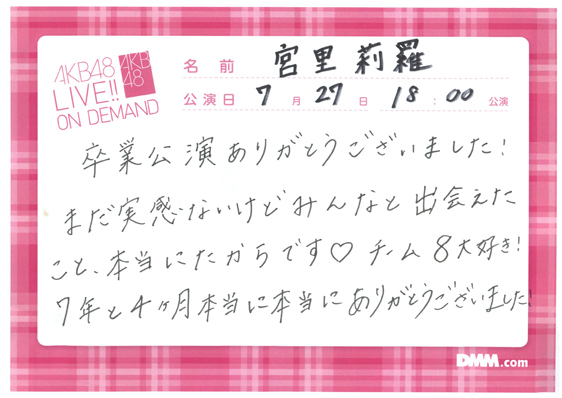 AKB48
LIVE!!
ON DEMAND
AKB
48
名前 宮里莉羅
公演日 7月27日 18:00公演
卒業公演ありがとうございました!
まだ実感ないけどみんなと出会えた
こと、本当にたからです♡ チーム8大好き!
7年と4ヶ月本当に本当にありがとうございました!
DMM.com